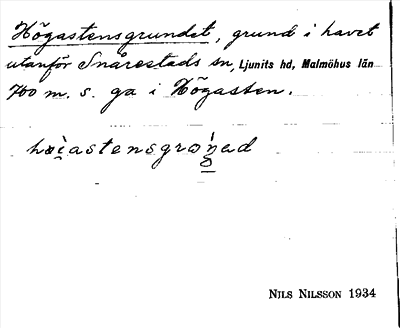 Högastensgrundet, grund i havet
utanför Snårestads sn, Ljunits hd, Malmöhus län
700 m. s. ga i Högasten.
NILS NILSSON 1934